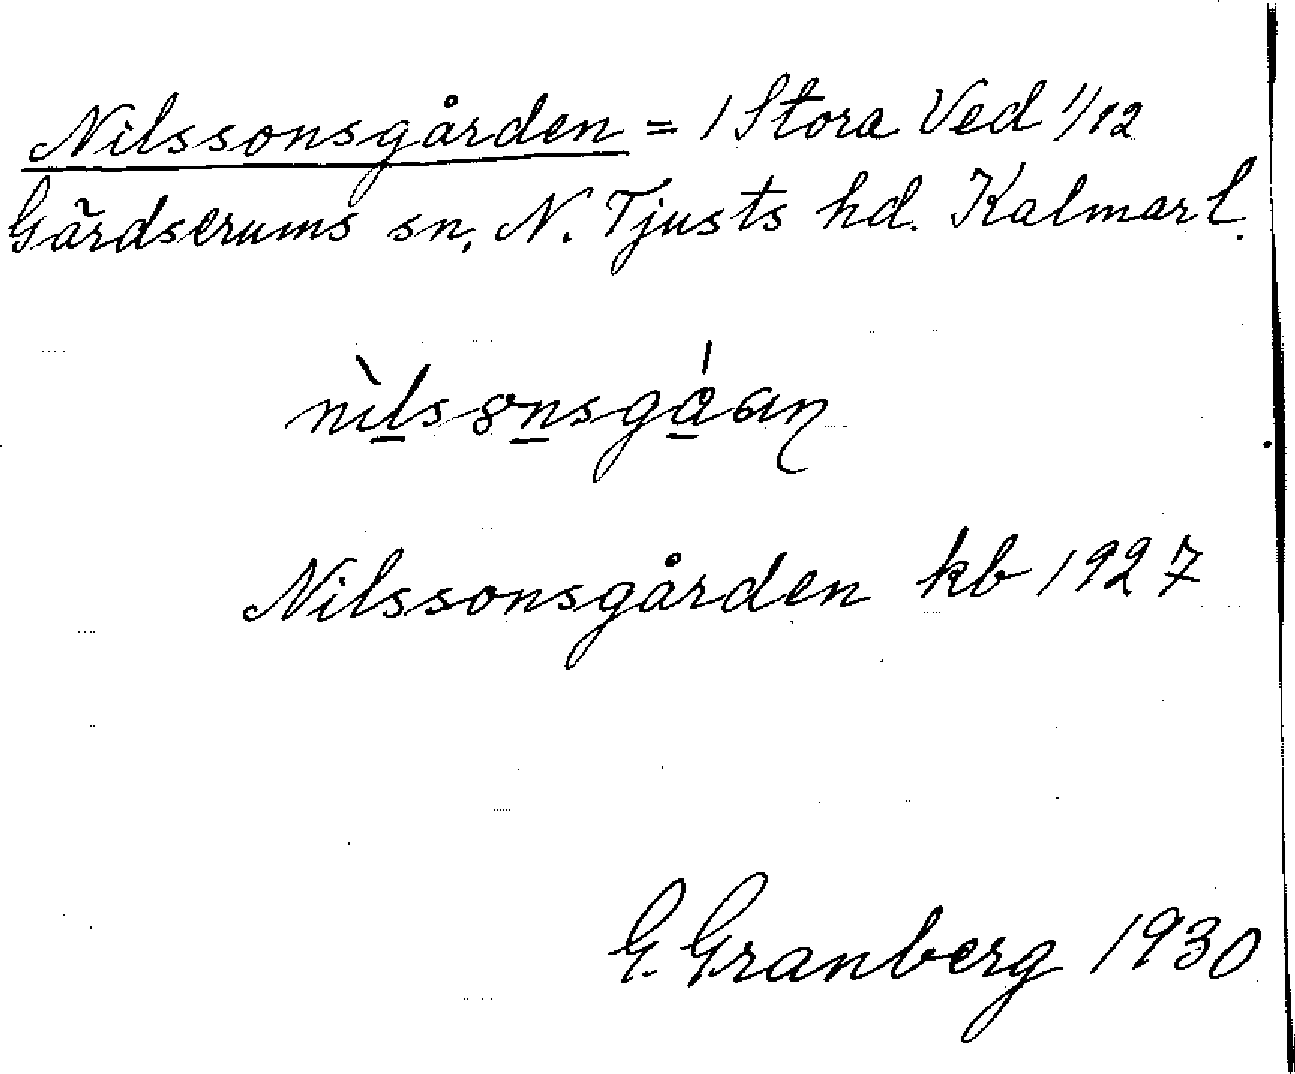 Nilssonsgården = 1 Stora Ved 1/12
Gärdserums sn, N. Tjusts hd. Kalmar l.
nìlssơnsgǻan
Nilssonsgården kb 1927
G. Granberg 1930